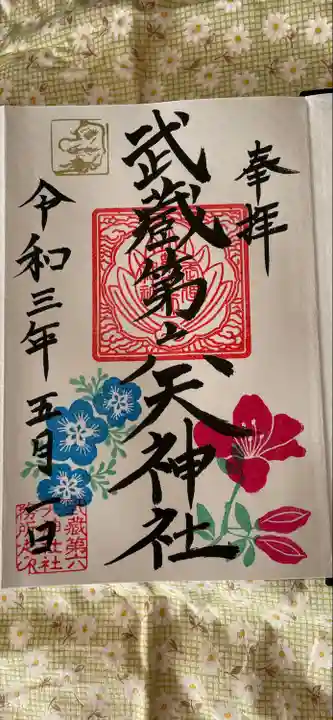 奉拝
武蔵第六天神社
令和三年五月一日
武蔵第六
天神社